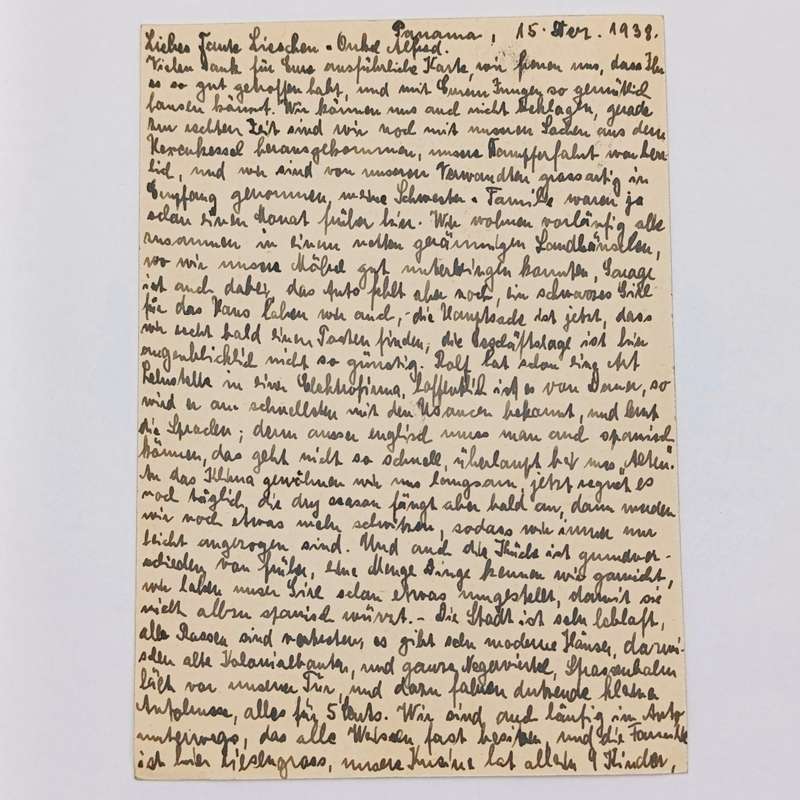 Panama, 15. Dez. 1938.
Liebes Tante Lieschen u. Onkel Alfred.
Vielen Dank für Eure ausführliche Karte, wir freuen uns, dass Ihr
es so gut getroffen habt, und mit Eurem Jungen so gemütlich
hausen könnt. Wir können uns auch nicht beklagen, gerade
zur rechten Zeit sind wir noch mit unseren Sachen aus dem
Hexenkessel herausgekommen, unsere Dampferfahrt war herr-
lich, und wir sind von unseren Verwandten grossartig in
Empfang genommen, meine Schwester u. Familie waren ja
schon einen Monat früher hier. Wir wohnen vorläufig alle
zusammen in einem netten geräumigen Landhäuschen,
wo wir unsere Möbel gut unterbringen konnten, Garage
ist auch dabei, das Auto fehlt aber noch, ein schwarzes Girl
für das Haus haben wir auch, - die Hauptsache ist jetzt, dass
wir recht bald einen Posten finden, die Geschäftslage ist hier
augenblicklich nicht so günstig. Rolf hat schon eine Art
Lehrstelle in einer Elektrofirma, hoffentlich ist es von Dauer, so
wird er am schnellsten mit den Usancen bekannt, und lernt
die Sprachen; denn ausser englisch muss man auch spanisch
können, das geht nicht so schnell, überhaupt bei uns "Alten".
An das Klima gewöhnen wir uns langsam, jetzt regnet es
noch täglich, die dry season fängt aber bald an, dann werden
wir noch etwas mehr schwitzen, sodass wir immer nur
leicht angezogen sind. Und auch die Küche ist grundver-
schieden von früher, eine Menge Dinge kennen wir garnicht,
wir haben unser Girl schon etwas umgestellt, damit sie
nicht allzu spanisch würzt. - Die Stadt ist sehr lebhaft,
alle Rassen sind vertreten, es gibt sehr moderne Häuser, dazwi-
schen alte Kolonialbauten, und ganze Negerviertel, Strassenbahn
hält vor unserer Tür, und dazu fahren dutzende kleine
Autobusse, alles für 5 Cents. Wir sind auch häufig im Auto
unterwegs, das alle Weissen fast besitzen, und die Familie
ist hier riesengross, unsere Kusine hat allein 9 Kinder,